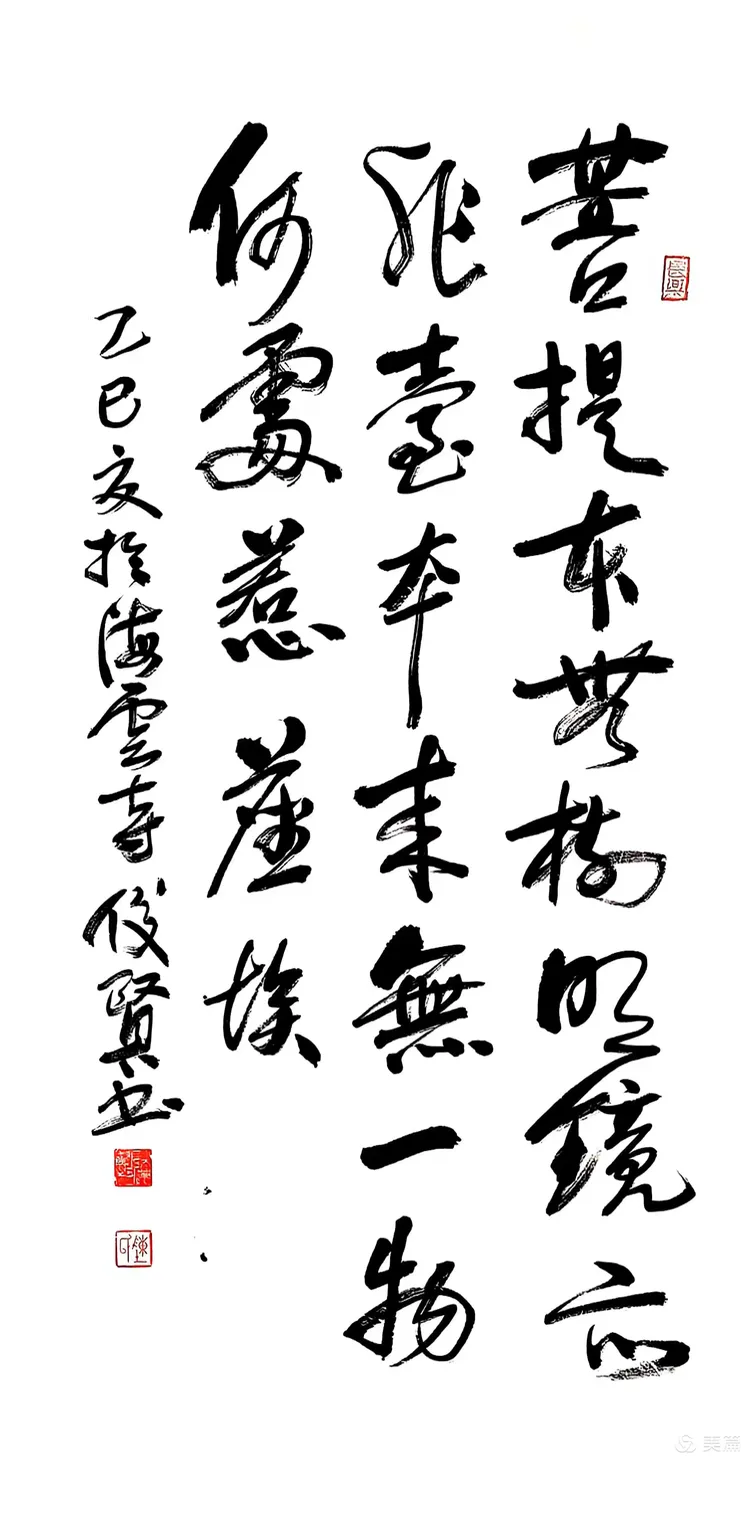 菩提本無樹明鏡亦
非臺本來無一物
何處惹塵埃
乙巳夏於海雲寺俊賢書
美篇